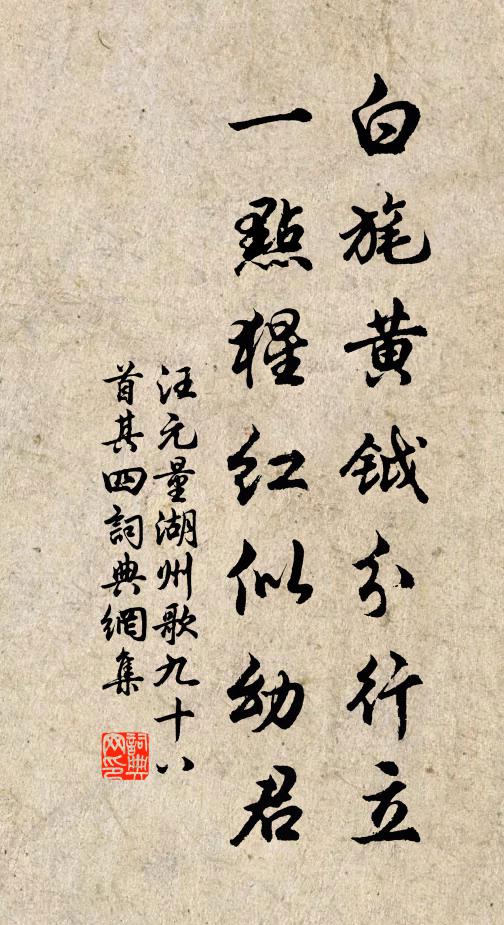 白旄黃鉞分行立
一點猩紅似幼君
汪元量湖州歌九十八
首其四詞典網集
詞典
网印